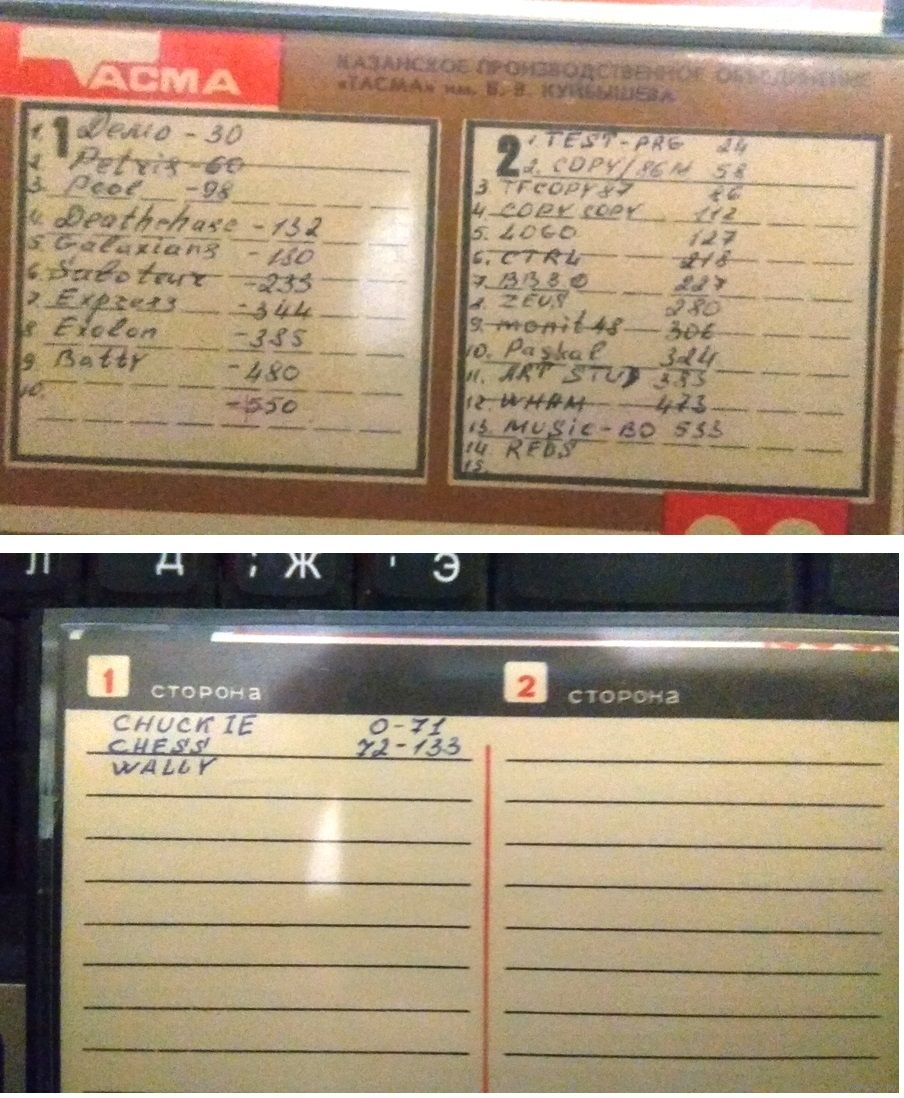 ТАСМА
КАЗАНСКОЕ ПРОИЗВОДСТВЕННОЕ ОБЪЕДИНЕНИЕ
«ТАСМА» им. В. В. КУЙБЫШЕВА
1
1. Демо - 30
2. Petris - 60
3. Pool - 98
4. Deathchase - 132
5. Galaxians - 180
6. Saboteur - 233
7. Express - 344
8. Exolon - 385
9. Batty - 480
10. - 550
2
1. TEST-PRG 24
2. COPY/86M 58
3. TFCOPY87 86
4. COPY COPY 112
5. LOGO 127
6. CTRL 218
7. BB30 227
8. ZEUS 280
9. monit 48 306
10. Paskal 324
11. ART STUD 383
12. WHAM 473
13. MUSIC-BO 533
14. REDS
15.
Л Д ; Ж ' Э
1 СТОРОНА
CHUCKIE 0-71
CHESS 72-133
WALLY
2 СТОРОНА